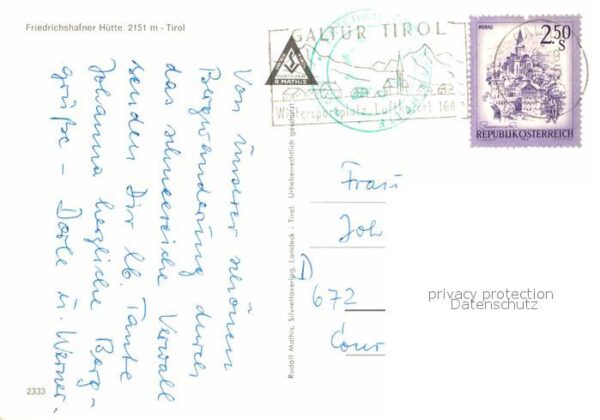 Friedrichshafner Hütte 2151 m - Tirol
GALTÜR TIROL
Wintersportplatz Luftkurort 160
R MATHIS
MURAU
2.50
S
REPUBLIK ÖSTERREICH
Von unserer schönen
Bergwanderung durch
das schneereiche Verwall
senden Dir lb. Tante
Johanna herzliche Berg-
grüße - Dorle u. Werner.
Rudolf Mathis, Silvrettaverlag, Landeck - Tirol. Urheberrechtlich geschützt
Frau
Joh
D
672
privacy protection
Datenschutz
2333